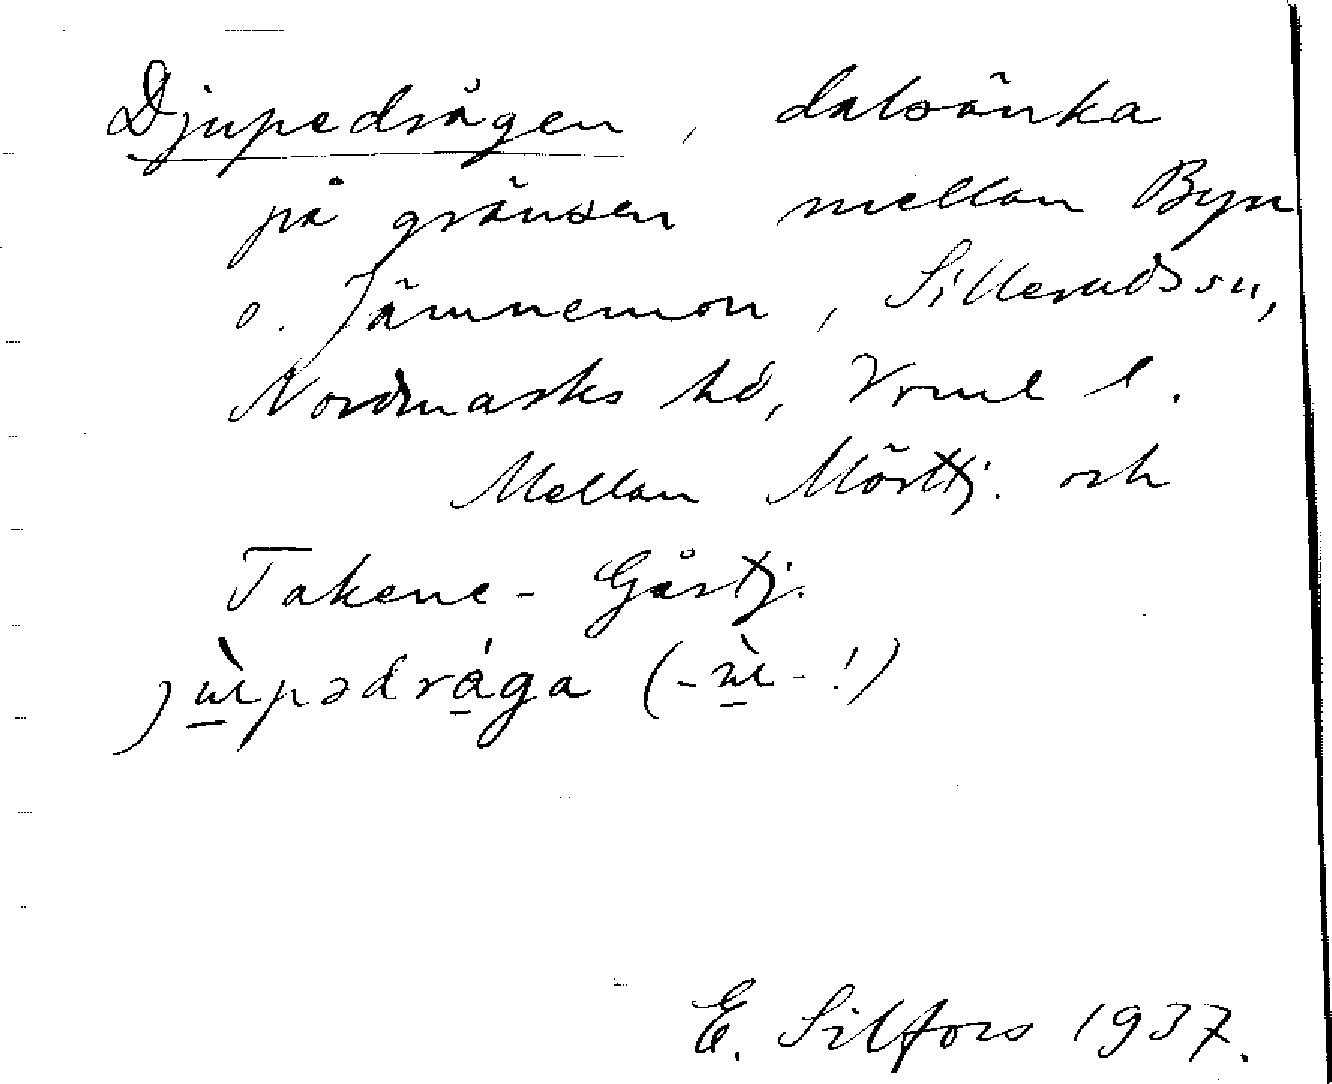 Djupedrågen, dalsänka
på gränsen mellan Byn
o. Jämnemon, Silleruds sn,
Nordmarks hd, Vrml l.
Mellan Mörttj. och
Takene-Gårstj.
jùpədråga (-ù-!)
E. Silfors 1937.